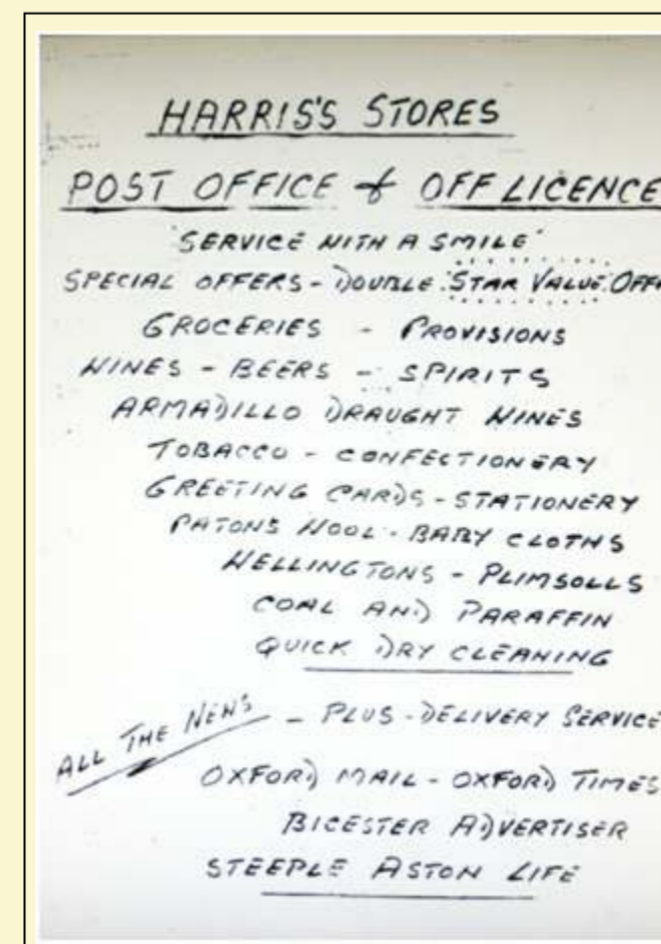 HARRIS'S STORES
POST OFFICE & OFF LICENCE
'SERVICE WITH A SMILE'
SPECIAL OFFERS - DOUBLE STAR VALUE OFF
GROCERIES - PROVISIONS
WINES - BEERS - SPIRITS
ARMADILLO DRAUGHT WINES
TOBACCO - CONFECTIONERY
GREETING CARDS - STATIONERY
PATONS WOOL - BABY CLOTHS
WELLINGTONS - PLIMSOLLS
COAL AND PARAFFIN
QUICK DRY CLEANING
ALL THE NEWS - PLUS - DELIVERY SERVICE
OXFORD MAIL - OXFORD TIMES
BICESTER ADVERTISER
STEEPLE ASTON LIFE